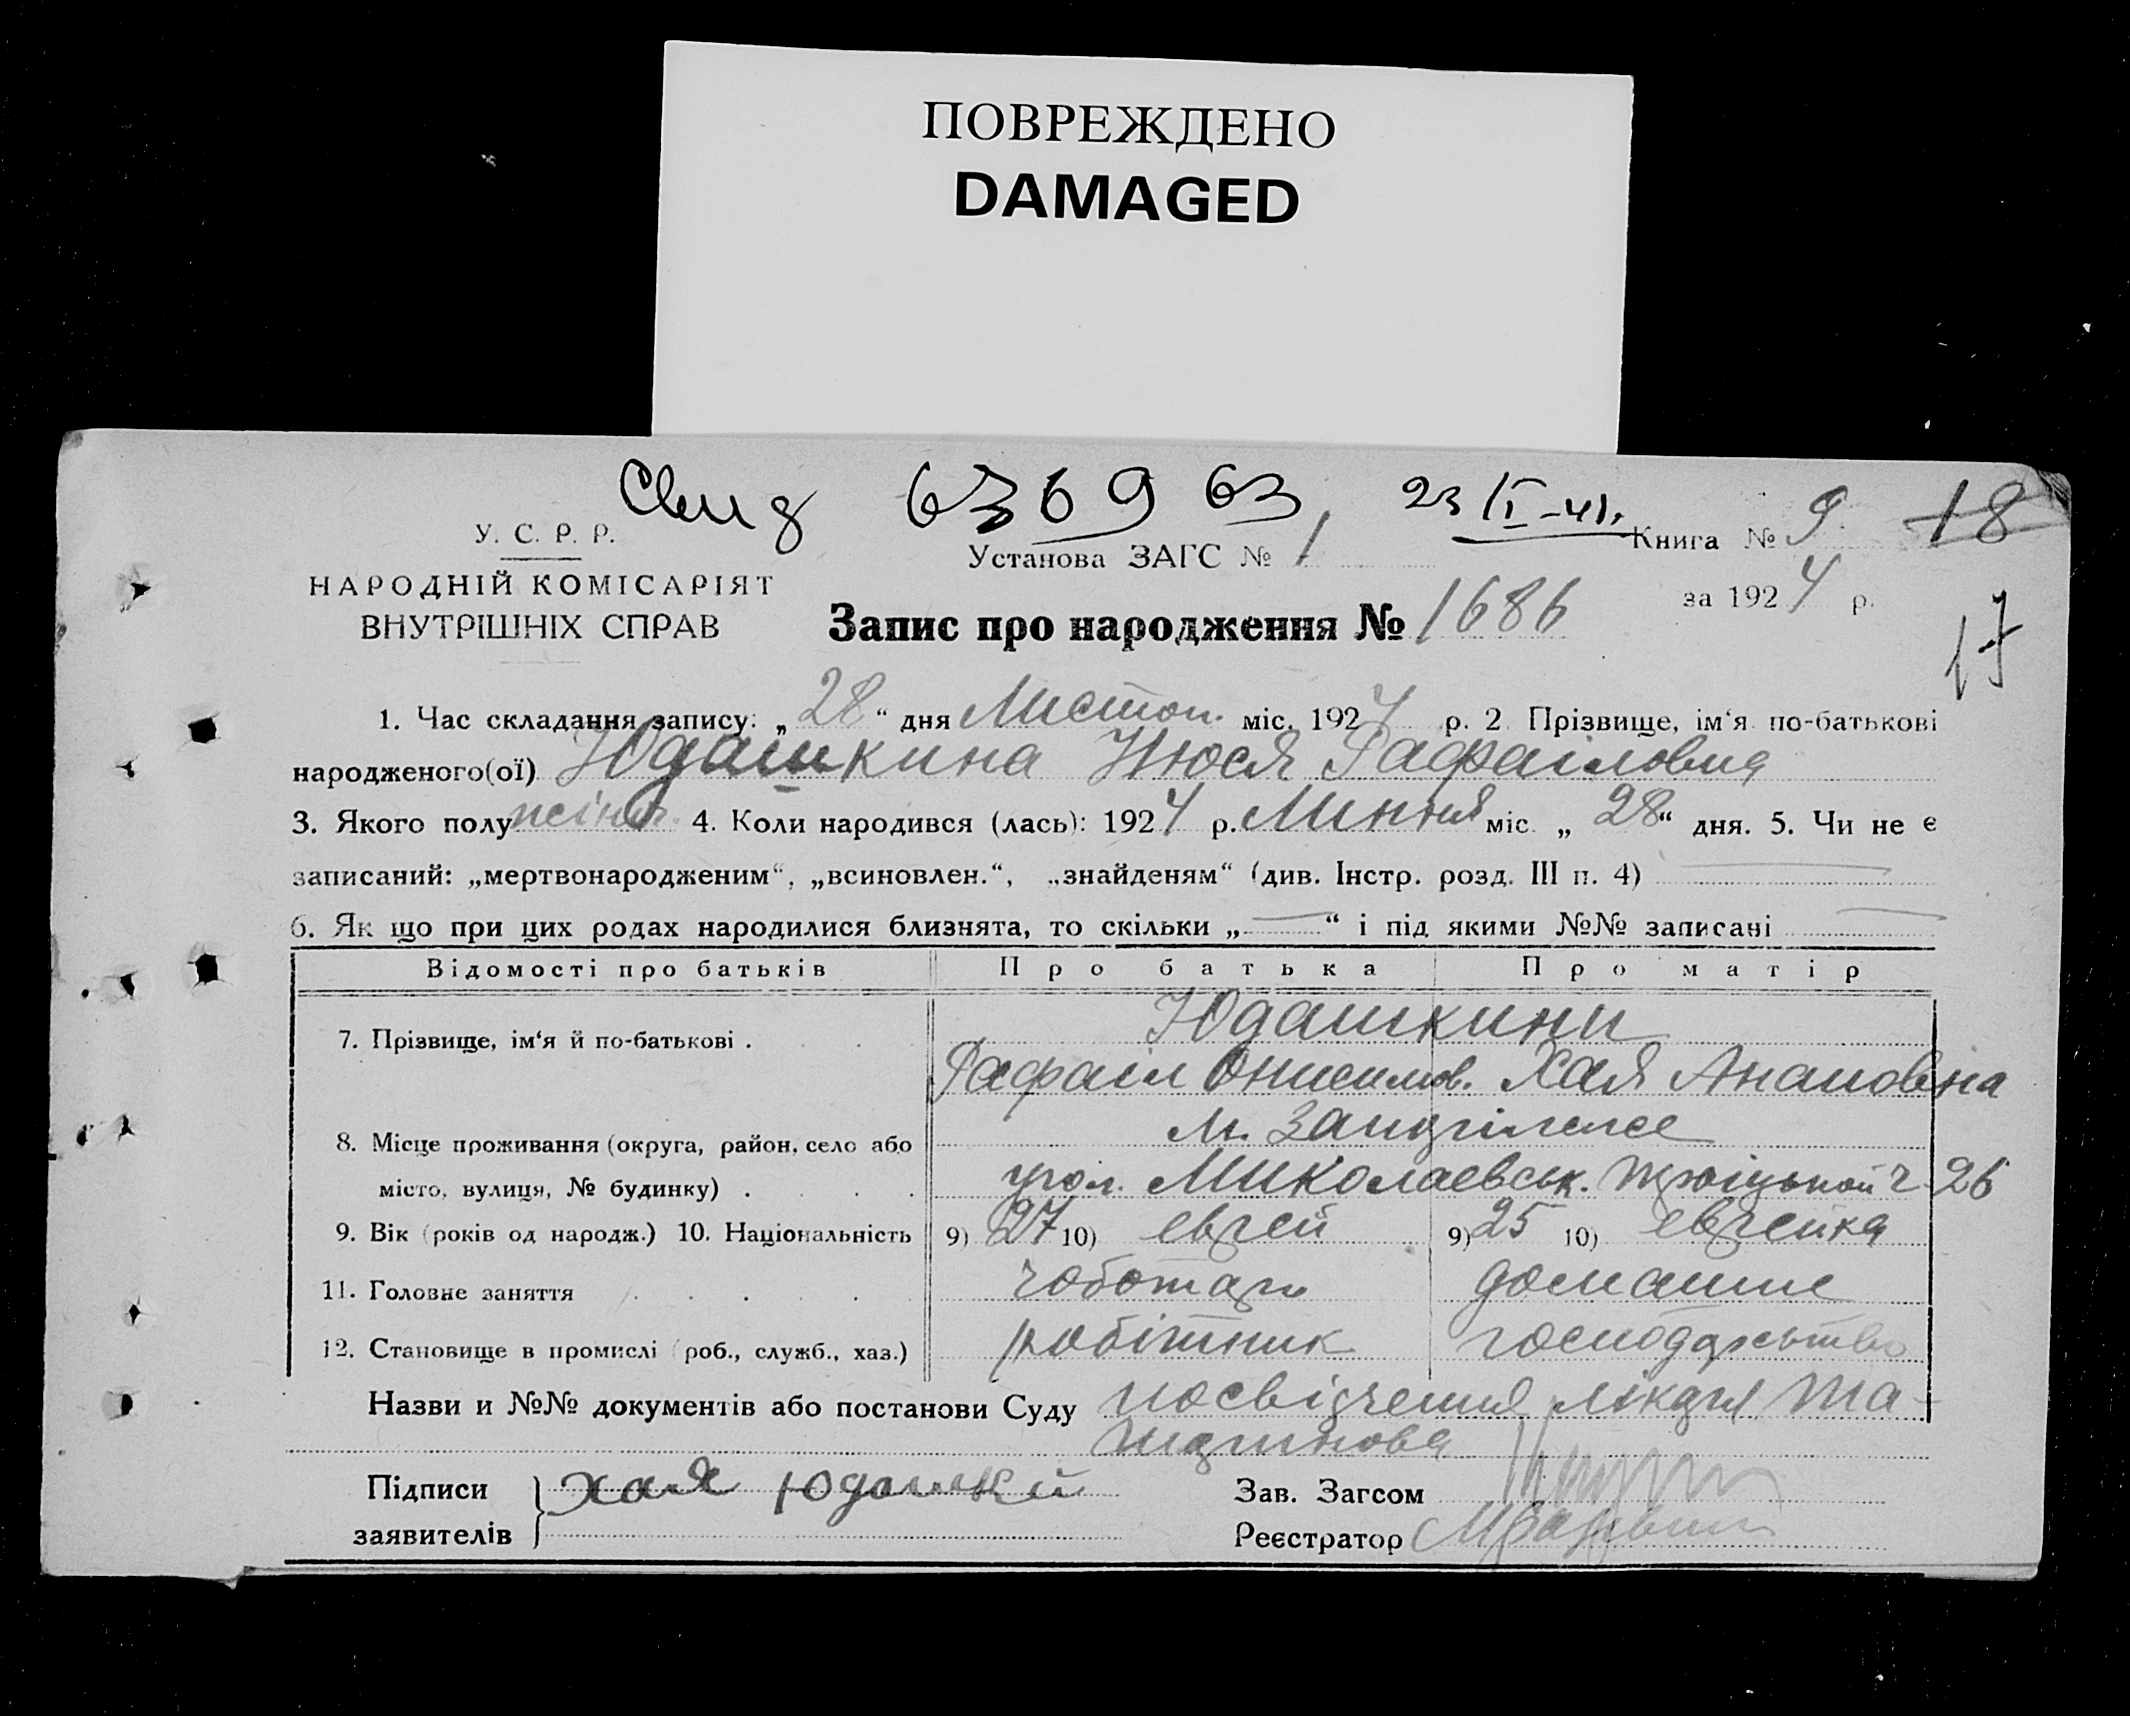 ПОВРЕЖДЕНО
DAMAGED
Свид 636963 23/I-41.
У. С. Р. Р.
НАРОДНІЙ КОМІСАРІЯТ
ВНУТРІШНІХ СПРАВ
Установа ЗАГС № 1
Книга № 9 18
за 1924 р.
Запис про народження № 1686
17
1. Час складання запису: „28“ дня Листоп. міс. 1924 р. 2 Прізвище, ім‘я по-батькові
народженого(ої) Юдашкина Нюся Рафаіловна
3. Якого полу жіноч. 4. Коли народився (лась): 1924 р. Липня міс. „28“ дня. 5. Чи не є
записаний: „мертвонародженим“, „всиновлен.“, „знайденям“ (див. Інстр. розд. III п. 4)
6. Як що при цих родах народилися близнята, то скільки „ — “ і під якими №№ записані —
Відомості про батьків Про батька Про матір
7. Прізвище, ім‘я й по-батькові . Юдашкини
Рафаіл Онисимов. Хая
8. Місце проживання (округа, район, село або
місто, вулиця, № будинку) . м.
Миколаевськ. Троіцькой 26
9. Вік (років од народж.) 10. Національність 9) 27 10) еврей 9) 25 10) еврейка
11. Головне заняття чоботарь домашне
12. Становище в промислі (роб., служб., хаз.) робітник господарство
Назви и №№ документів або постанови Суду посвідчення лікаря
Підписи
заявителів
Хая Юдашкін
Зав. Загсом
Реєстратор